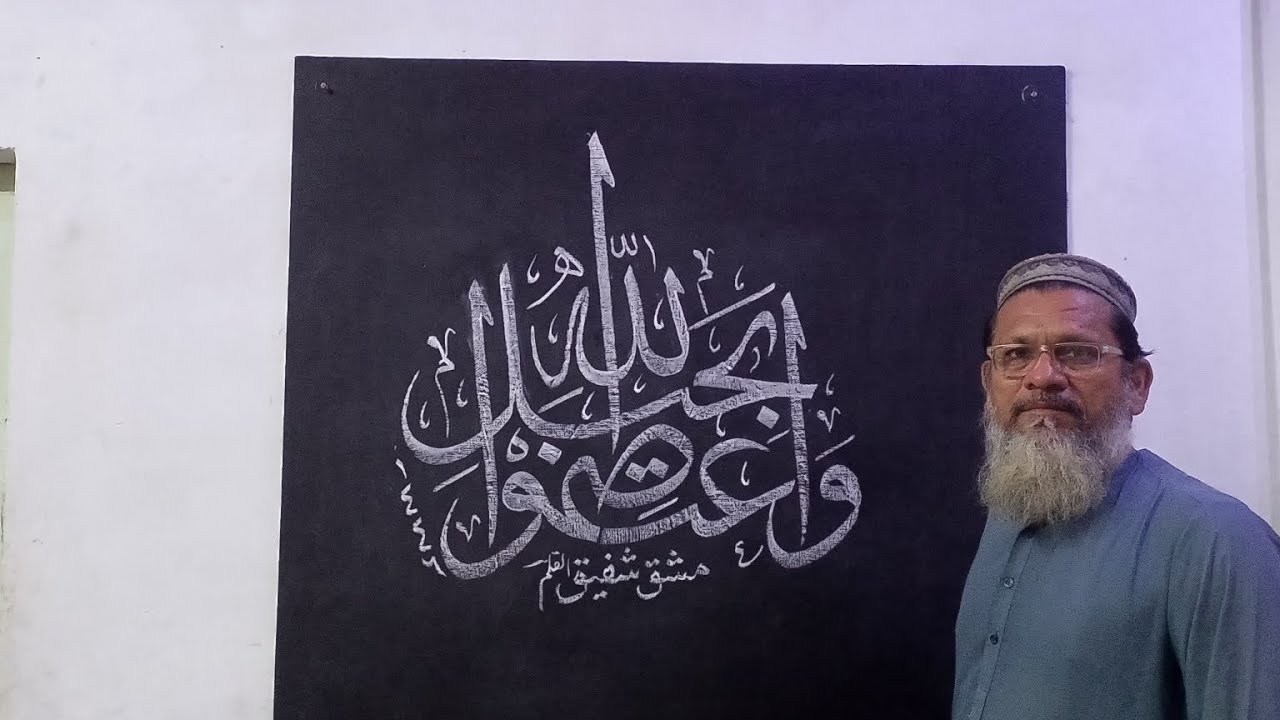 وَاعْتَصِمُوا بِحَبْلِ اللّٰهِ
مشق شفیق القلم